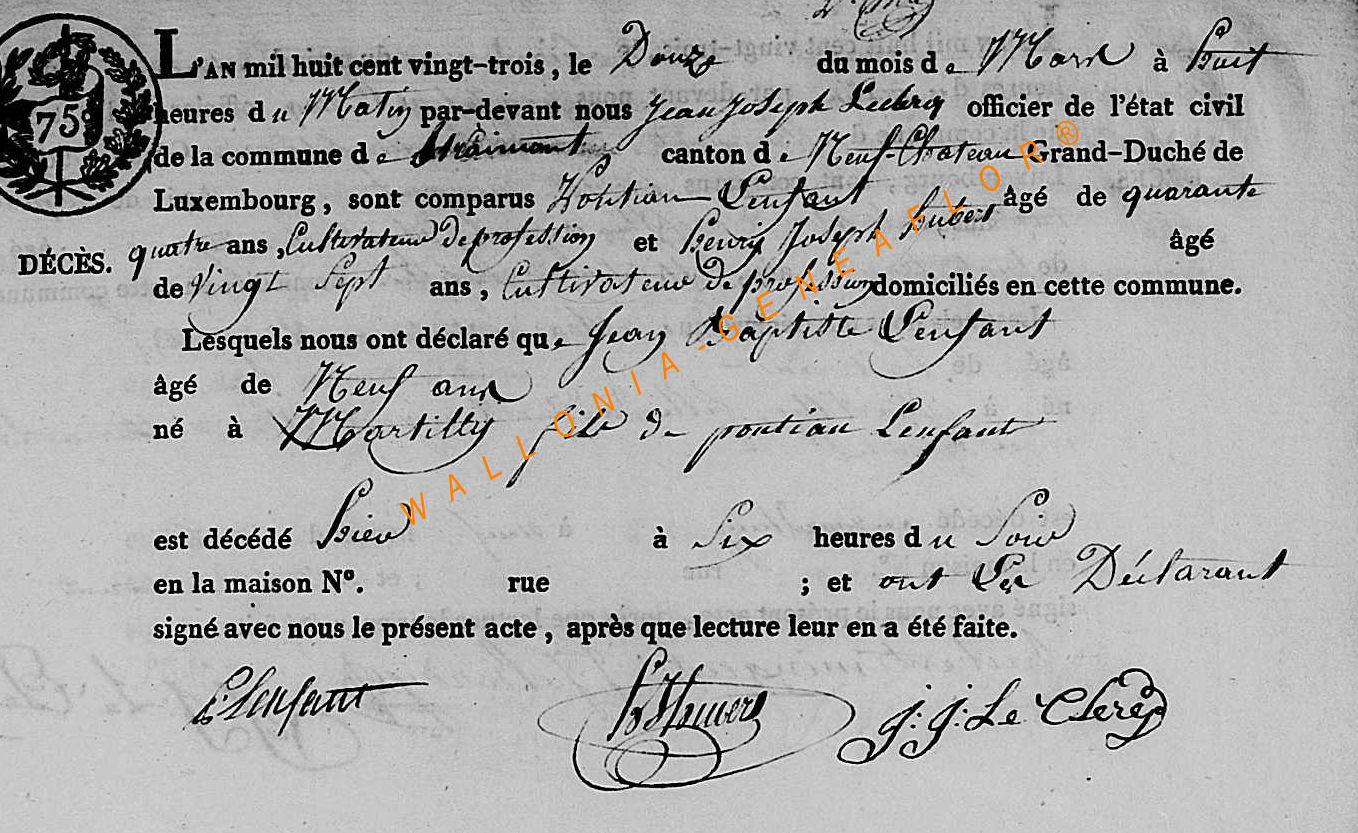 75
L'AN mil huit cent vingt-trois, le Douze du mois de Mars à huit
heures du Matin par-devant nous Jean Joseph Leclercq officier de l'état civil
de la commune de Straimont canton de Neuf-Chateau Grand-Duché de
Luxembourg, sont comparus Pontian Lenfant âgé de quarante
DÉCÈS.
quatre ans, Cultivateur de profession et henry Joseph hubert âgé
de Vingt Sept ans, Cultivateur de profession domiciliés en cette commune.
Lesquels nous ont déclaré que Jean Baptiste Lenfant
âgé de Neuf ans
né à Martilly fils de pontian Lenfant
est décédé hier à Six heures du Soir
en la maison N°. rue ; et ont Les Déclarant
signé avec nous le présent acte, après que lecture leur en a été faite.
PLenfant
J. J. Le Clercq
WALLONIA-GENEAFLOR®